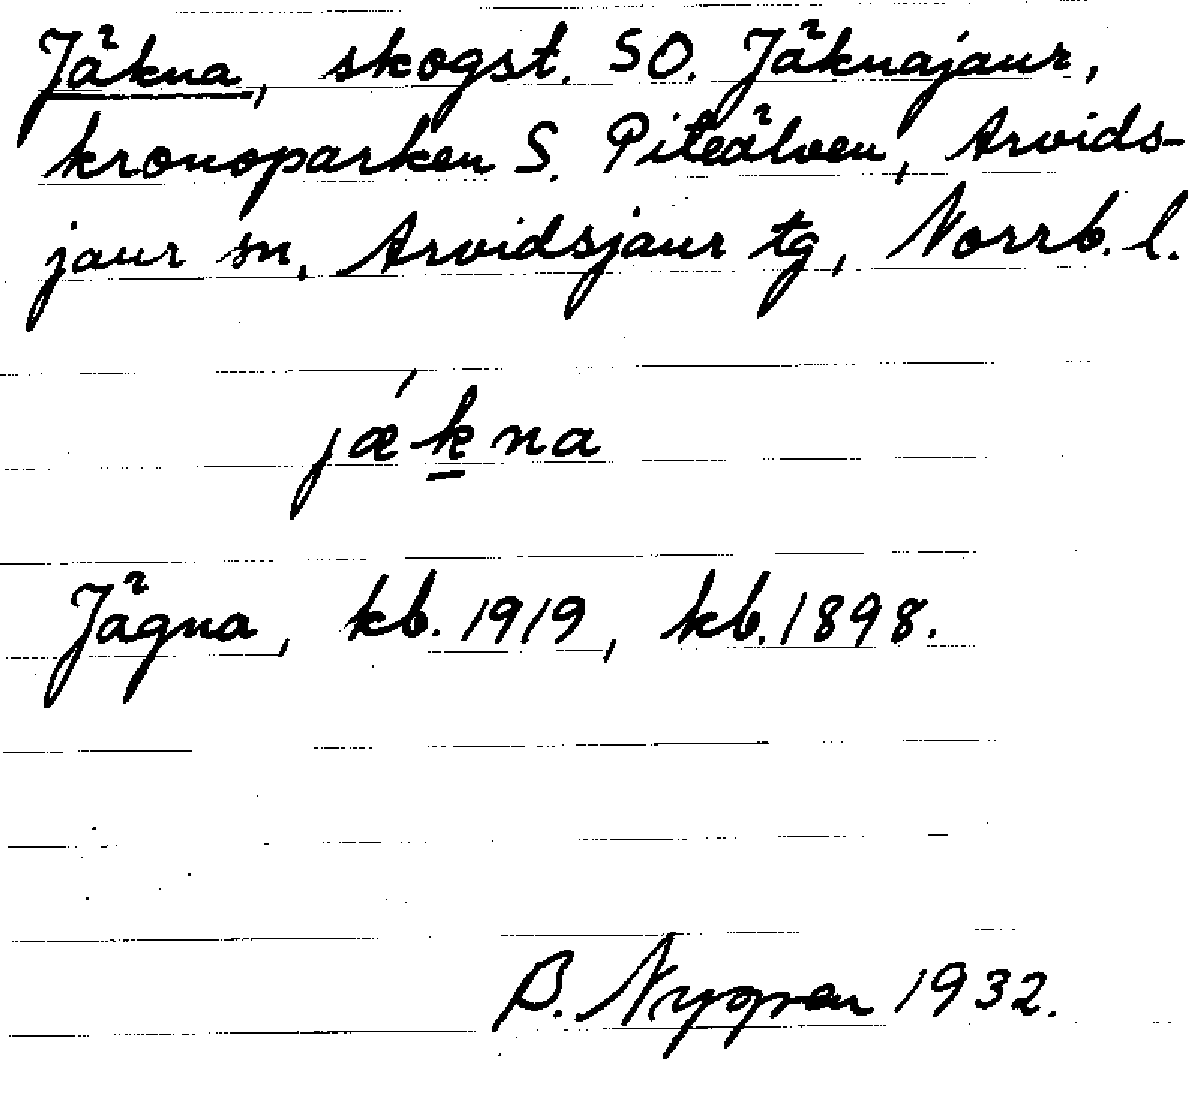 Jäkna, skogst. SO. Jäknajaur,
kronoparken S. Piteälven, Arvids-
jaur sn, Arvidsjaur tg, Norrb. l.
jǽk̲na
Jägna, kb. 1919, kb. 1898.
B. Nygren 1932.